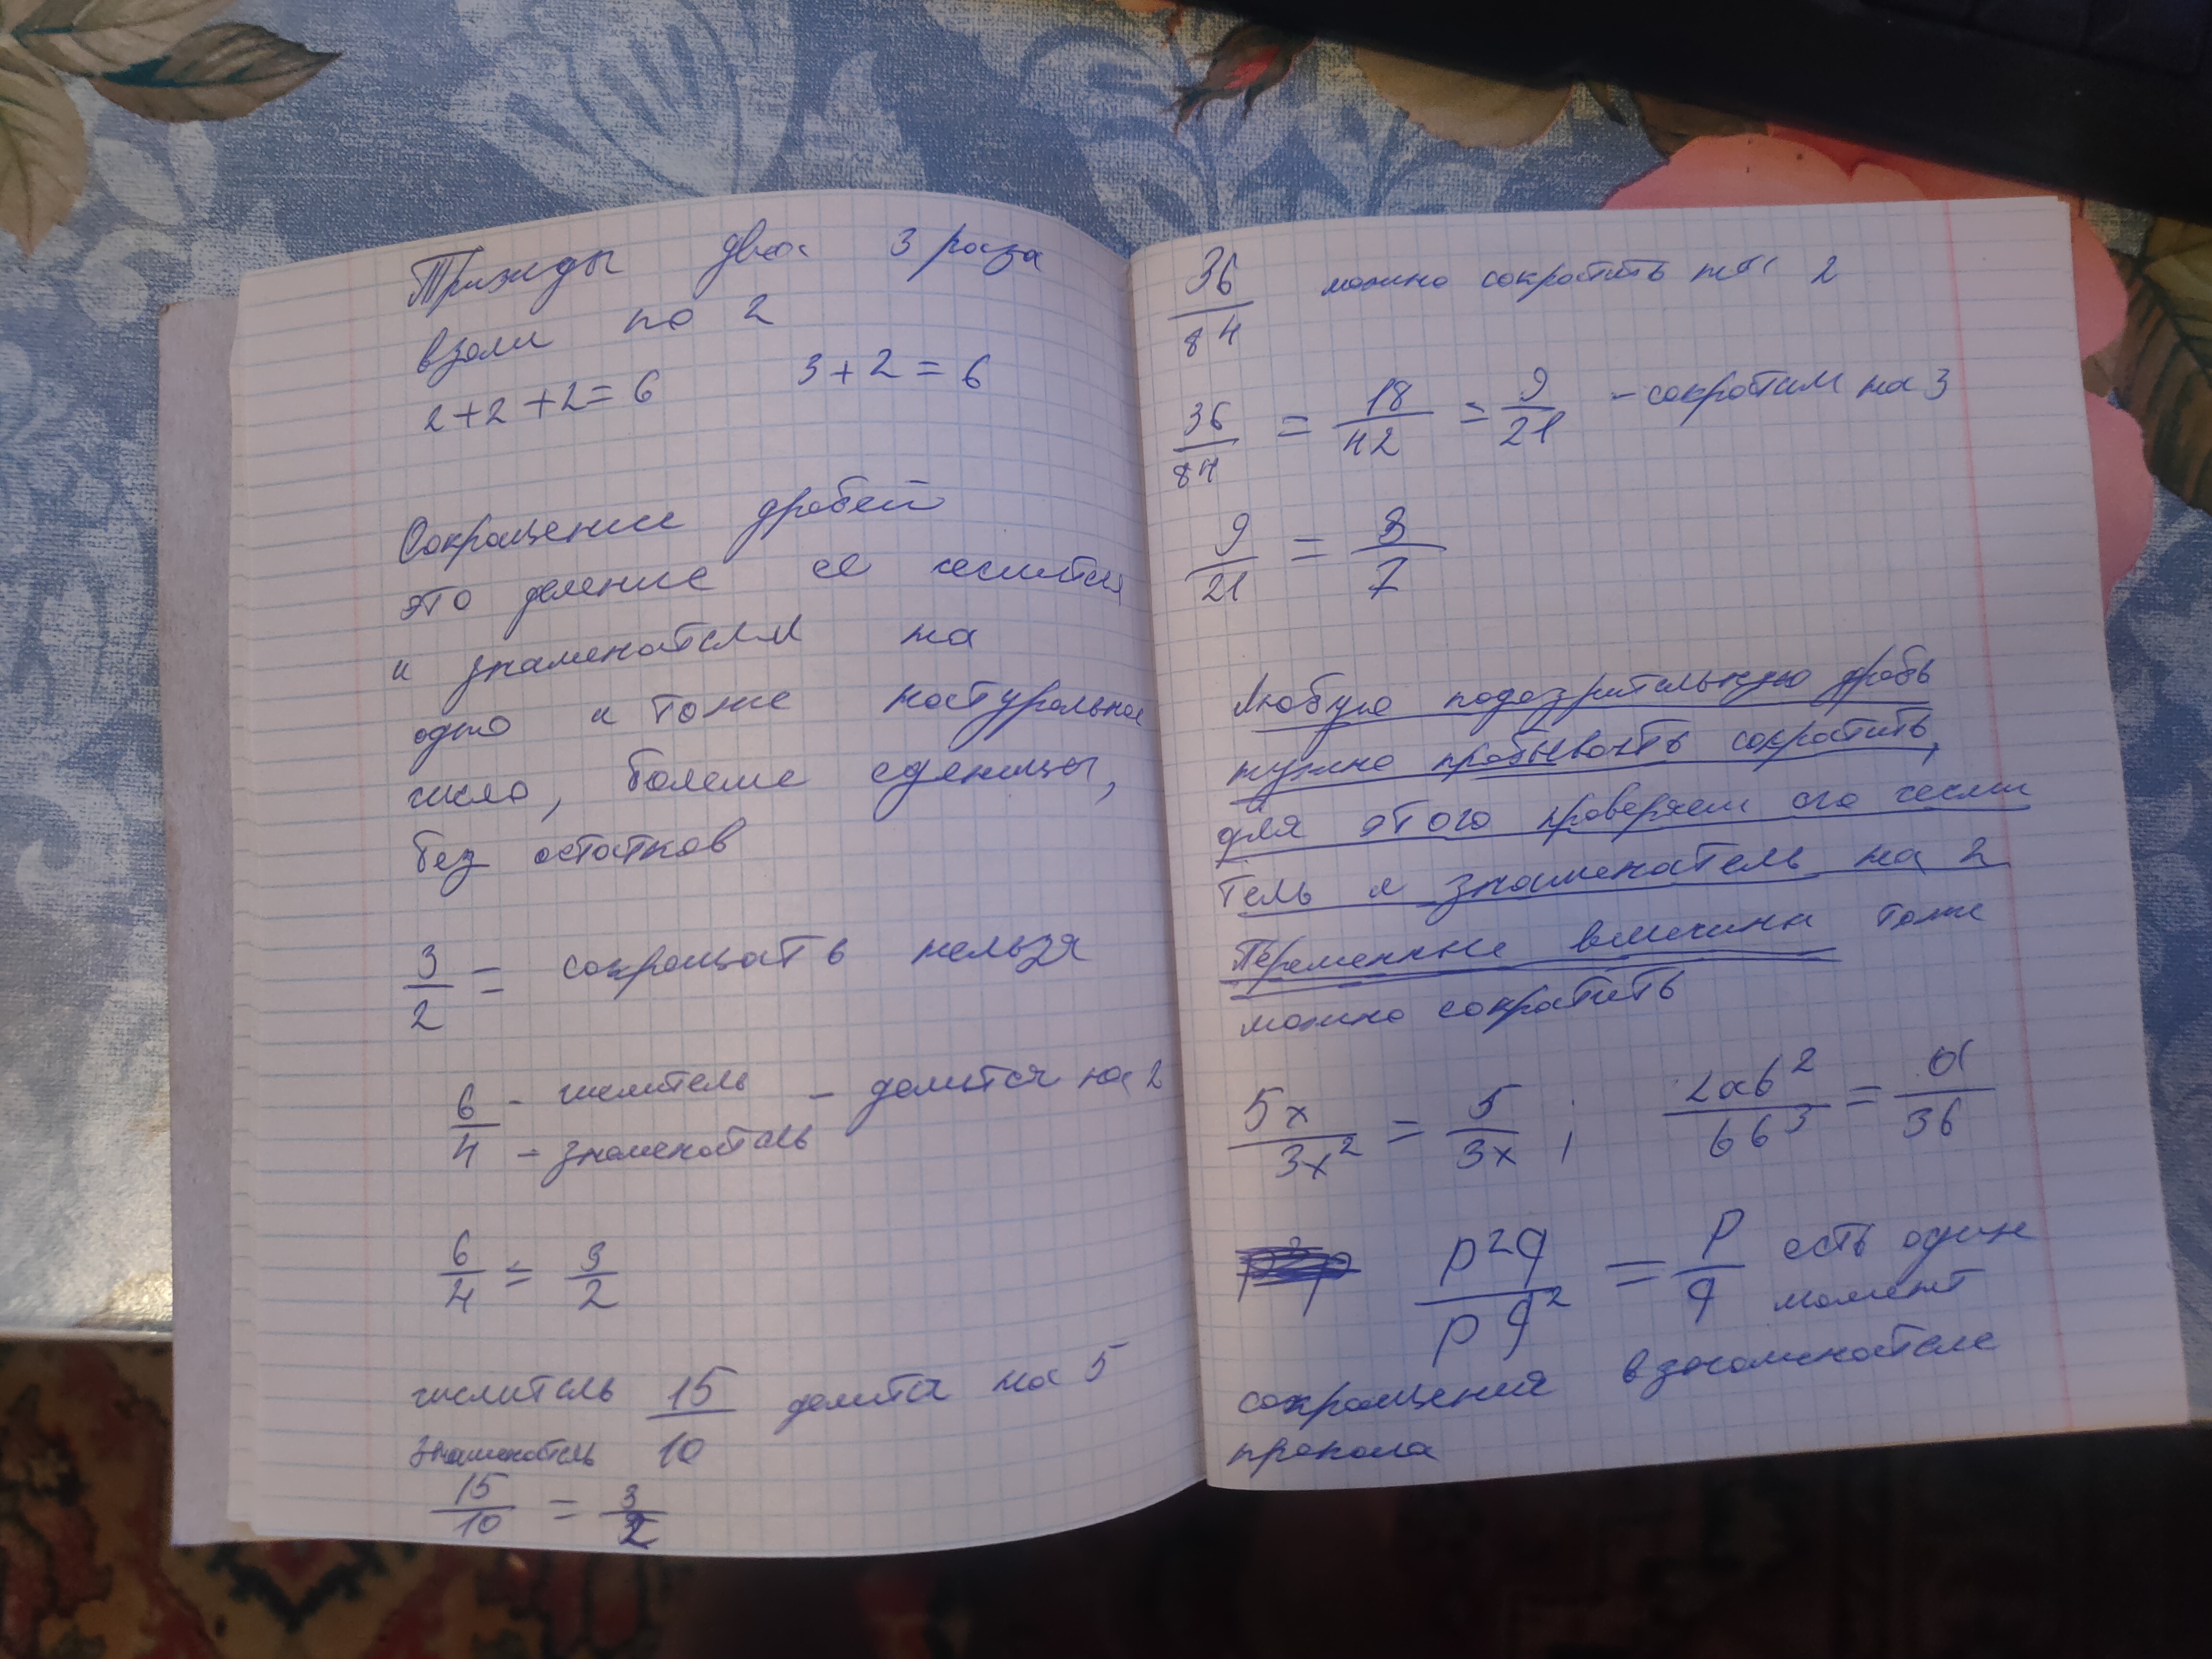 Трижды два 3 раза
взяли по 2
2+2+2=6 3+2=6
Сокращение дробей
это деление её числителя
и знаменателя на
одно и тоже натуральное
число, больше еденицы,
без остатков
3/2 = сокращать нельзя
6/4 - числитель - знаменатель - делится на 2
6/4 = 3/2
числитель 15 делится на 5
знаменатель 10
15/10 = 3/2
36/84 можно сократить на 2
36/84 = 18/42 = 9/21 - сократим на 3
9/21 = 3/7
Любую подозрительную дробь
нужно пробывать сократить,
для этого проверяем его числи
тель и знаменатель на 2
Переменные величины тоже
можно сократить
5x/3x² = 5/3x ; 2ab²/6b³ = a/3b
p²q/pq² = p/q есть один
момент
сокращения в знаменателе